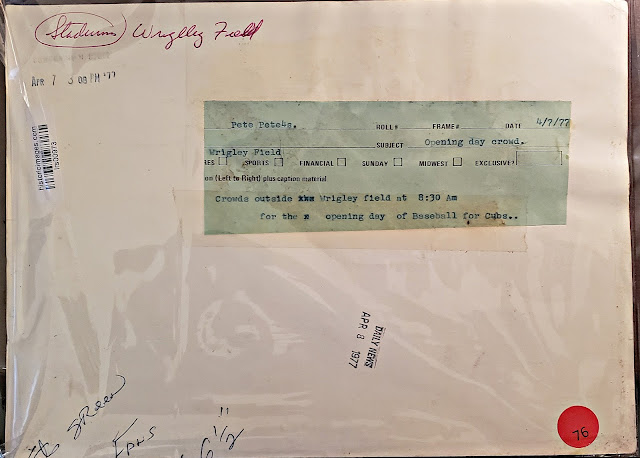 Stadiums Wriglley Field
APR 7 3 08 PM '77
historicimages.com
Pete Pete4s.
ROLL# FRAME# DATE 4/7/77
Wrigley Field
SUBJECT Opening day crowd.
RES SPORTS FINANCIAL SUNDAY MIDWEST EXCLUSIVE?
on (Left to Right) plus caption material
Crowds outside Wrigley field at 8:30 Am
for the x opening day of Baseball for Cubs..
DAILY NEWS
APR 8 1977
Fans
6 1/2"
76